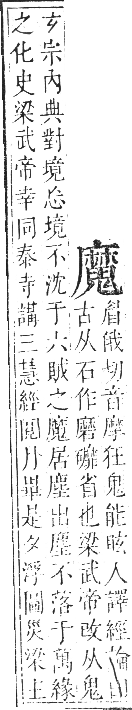 魔
眉俄切音摩狂鬼能眩人譯經論曰
古从石作磨礳省也梁武帝改从鬼
玄宗內典對境忘境不沈于六賊之魔居塵出塵不落于萬緣
之化史梁武帝幸同泰寺講三慧經閱月畢是夕浮圖災梁主